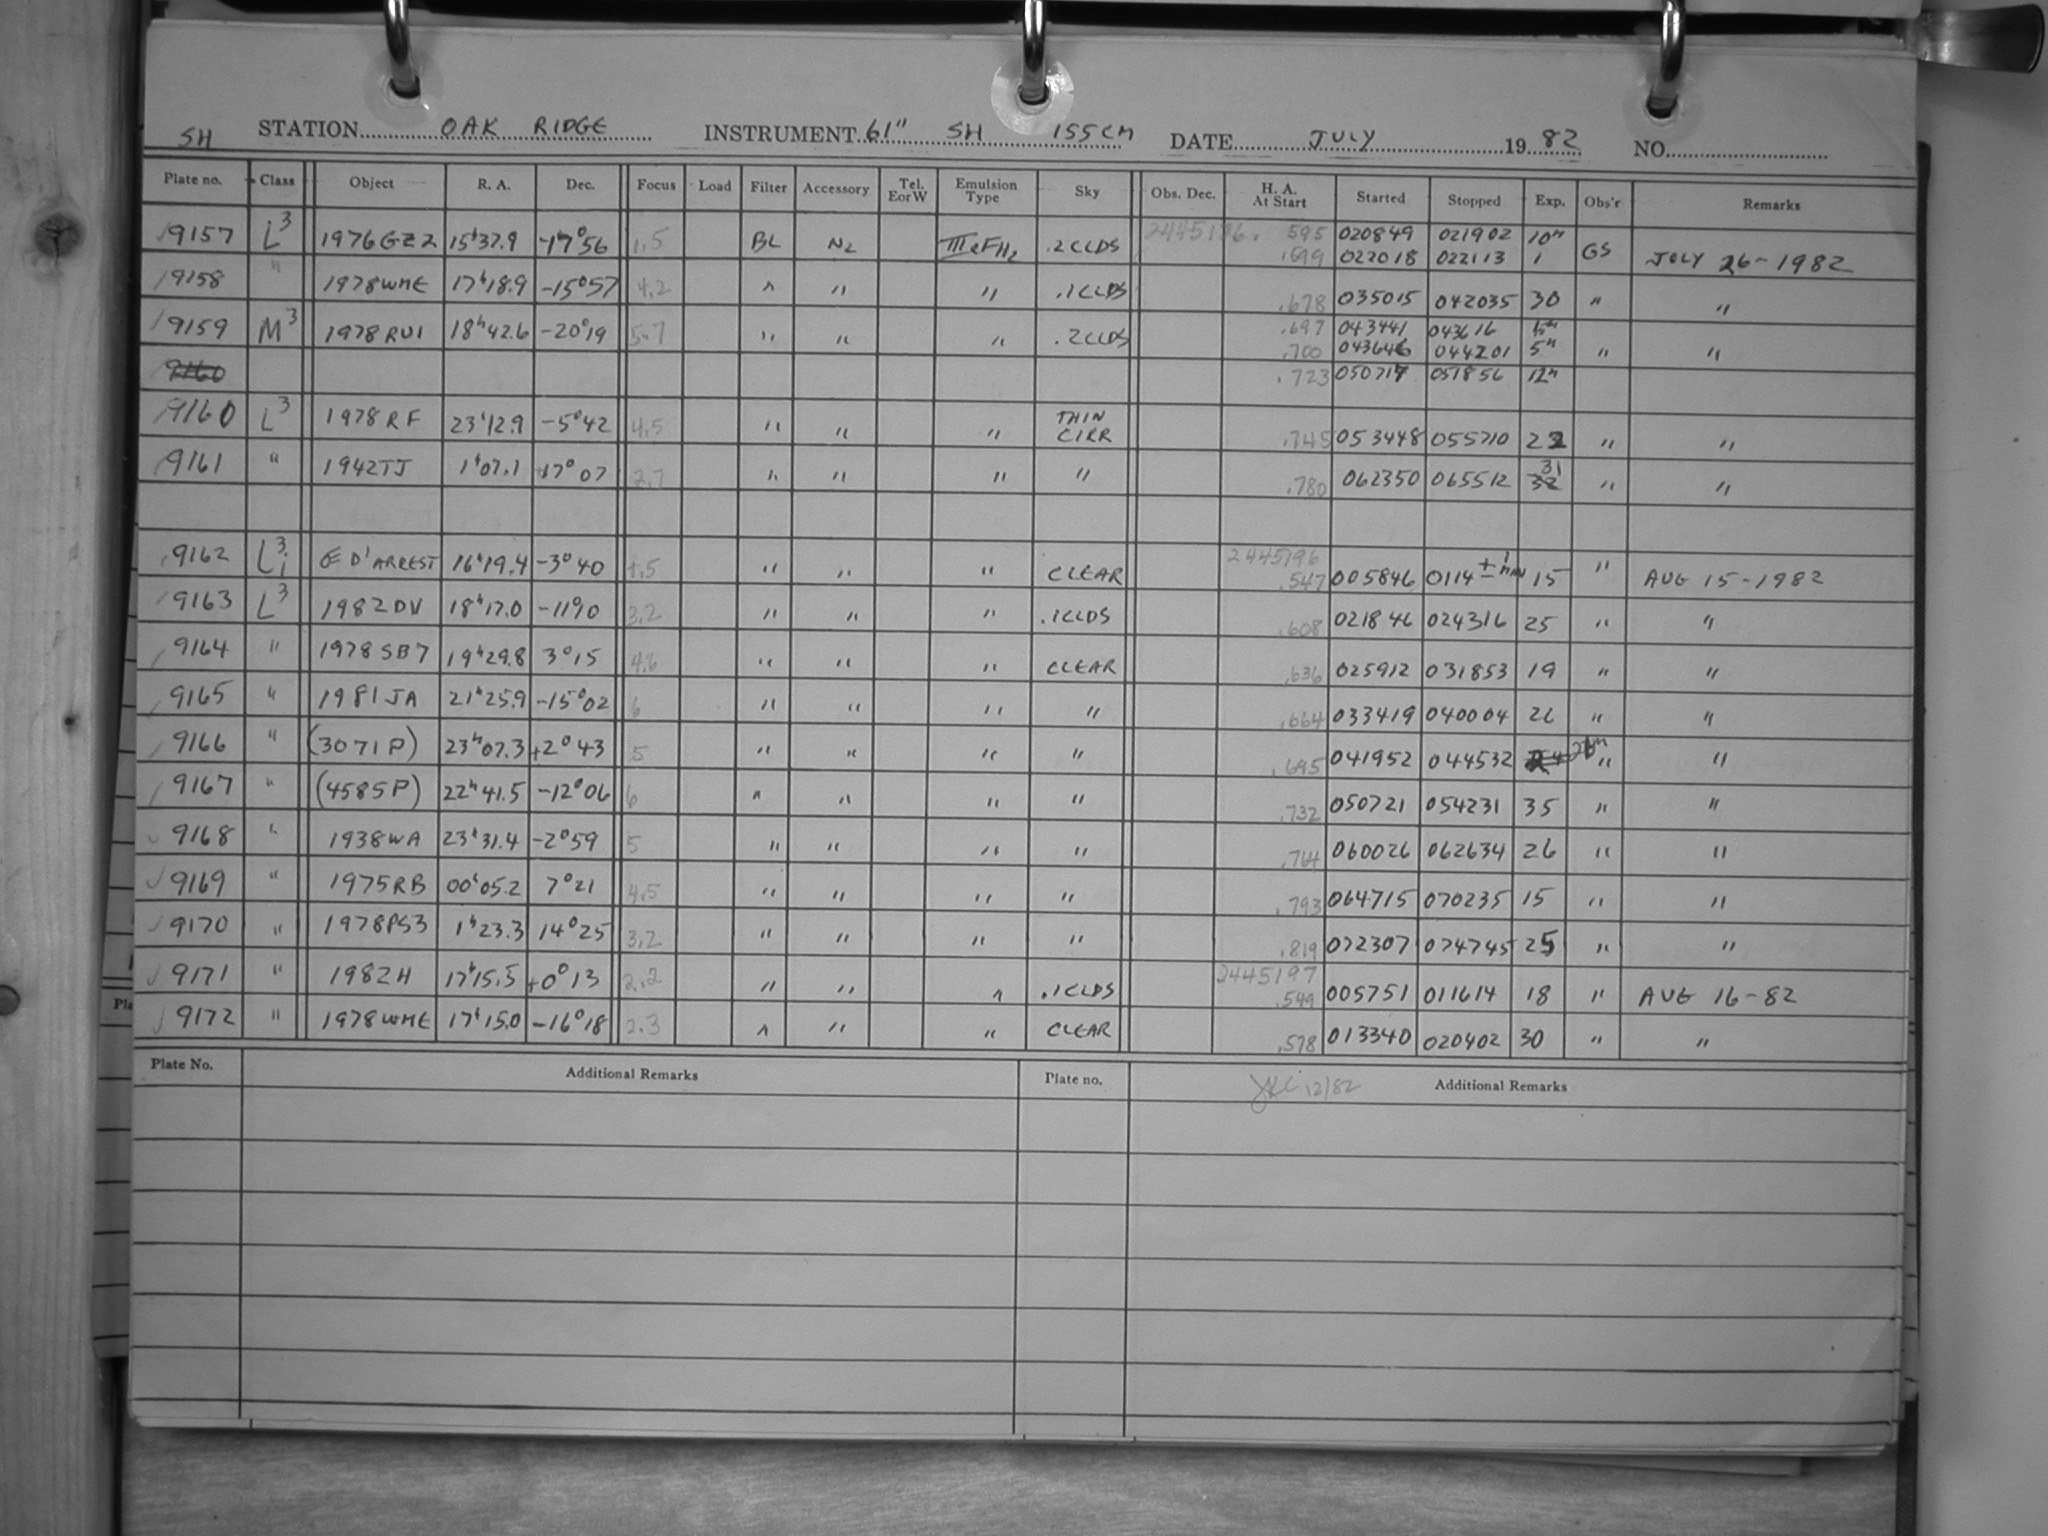 SH STATION OAK RIDGE INSTRUMENT 61" SH 155CM DATE JULY 1982 NO.
Plate no. Class Object R. A. Dec. Focus Load Filter Accessory Tel. EorW Emulsion Type Sky Obs. Dec. H. A. At Start Started Stopped Exp. Obs'r Remarks
9157 L3 1976GZ2 15h37.9 -17°56 1.5 BL N2 IIIaFH2 .2CLDS .595 020849 021902 10m GS JULY 26-1982
.599 022018 022113 1
9158 " 1978WME 17h18.9 -15°57 4.2 " " " .1CLDS .678 035015 042035 30 " "
9159 M3 1978RU1 18h42.6 -20°19 5.7 " " " .2CLDS .697 043441 043616 " "
.700 043646 044201 5m
9160 .723 050717 051856 12m
9160 L3 1978RF 23h12.9 -5°42 4.5 " " " THIN CIRR .745 053448 055710 22 " "
9161 " 1942TJ 1h07.1 +17°07 2.7 " " " " .780 062350 065512 31 32 " "
9162 L3 D'ARREST 16h19.4 -3°40 " " " CLEAR 2445196 .547 005846 0114 ± 1 MIN 15 " AUG 15-1982
9163 L3 1982DV 18h17.0 -11°0 3.2 " " " .1CLDS .608 021846 024316 25 " "
9164 " 1978SB7 19h29.8 3°15 4.6 " " " CLEAR .636 025912 031853 19 " "
9165 " 1981JA 21h25.9 -15°02 6 " " " " .664 033419 040004 26 " "
9166 " (3071P) 23h07.3 +2°43 5 " " " " .695 041952 044532 " "
9167 " (4585P) 22h41.5 -12°06 6 " " " " .732 050721 054231 35 " "
9168 " 1938WA 23h31.4 -2°59 5 " " " " .764 060026 062634 26 " "
9169 " 1975RB 00h05.2 7°21 4.5 " " " " .793 064715 070235 15 " "
9170 " 1978PS3 1h23.3 14°25 3.2 " " " " .819 072307 074745 25 " "
9171 " 1982H 17h15.5 +0°13 2.2 " " " .1CLDS 2445197 .549 005751 011614 18 " AUG 16-82
9172 " 1978WME 17h15.0 -16°18 2.3 " " " CLEAR .578 013340 020402 30 " "
Plate No. Additional Remarks Plate no. 12/82 Additional Remarks